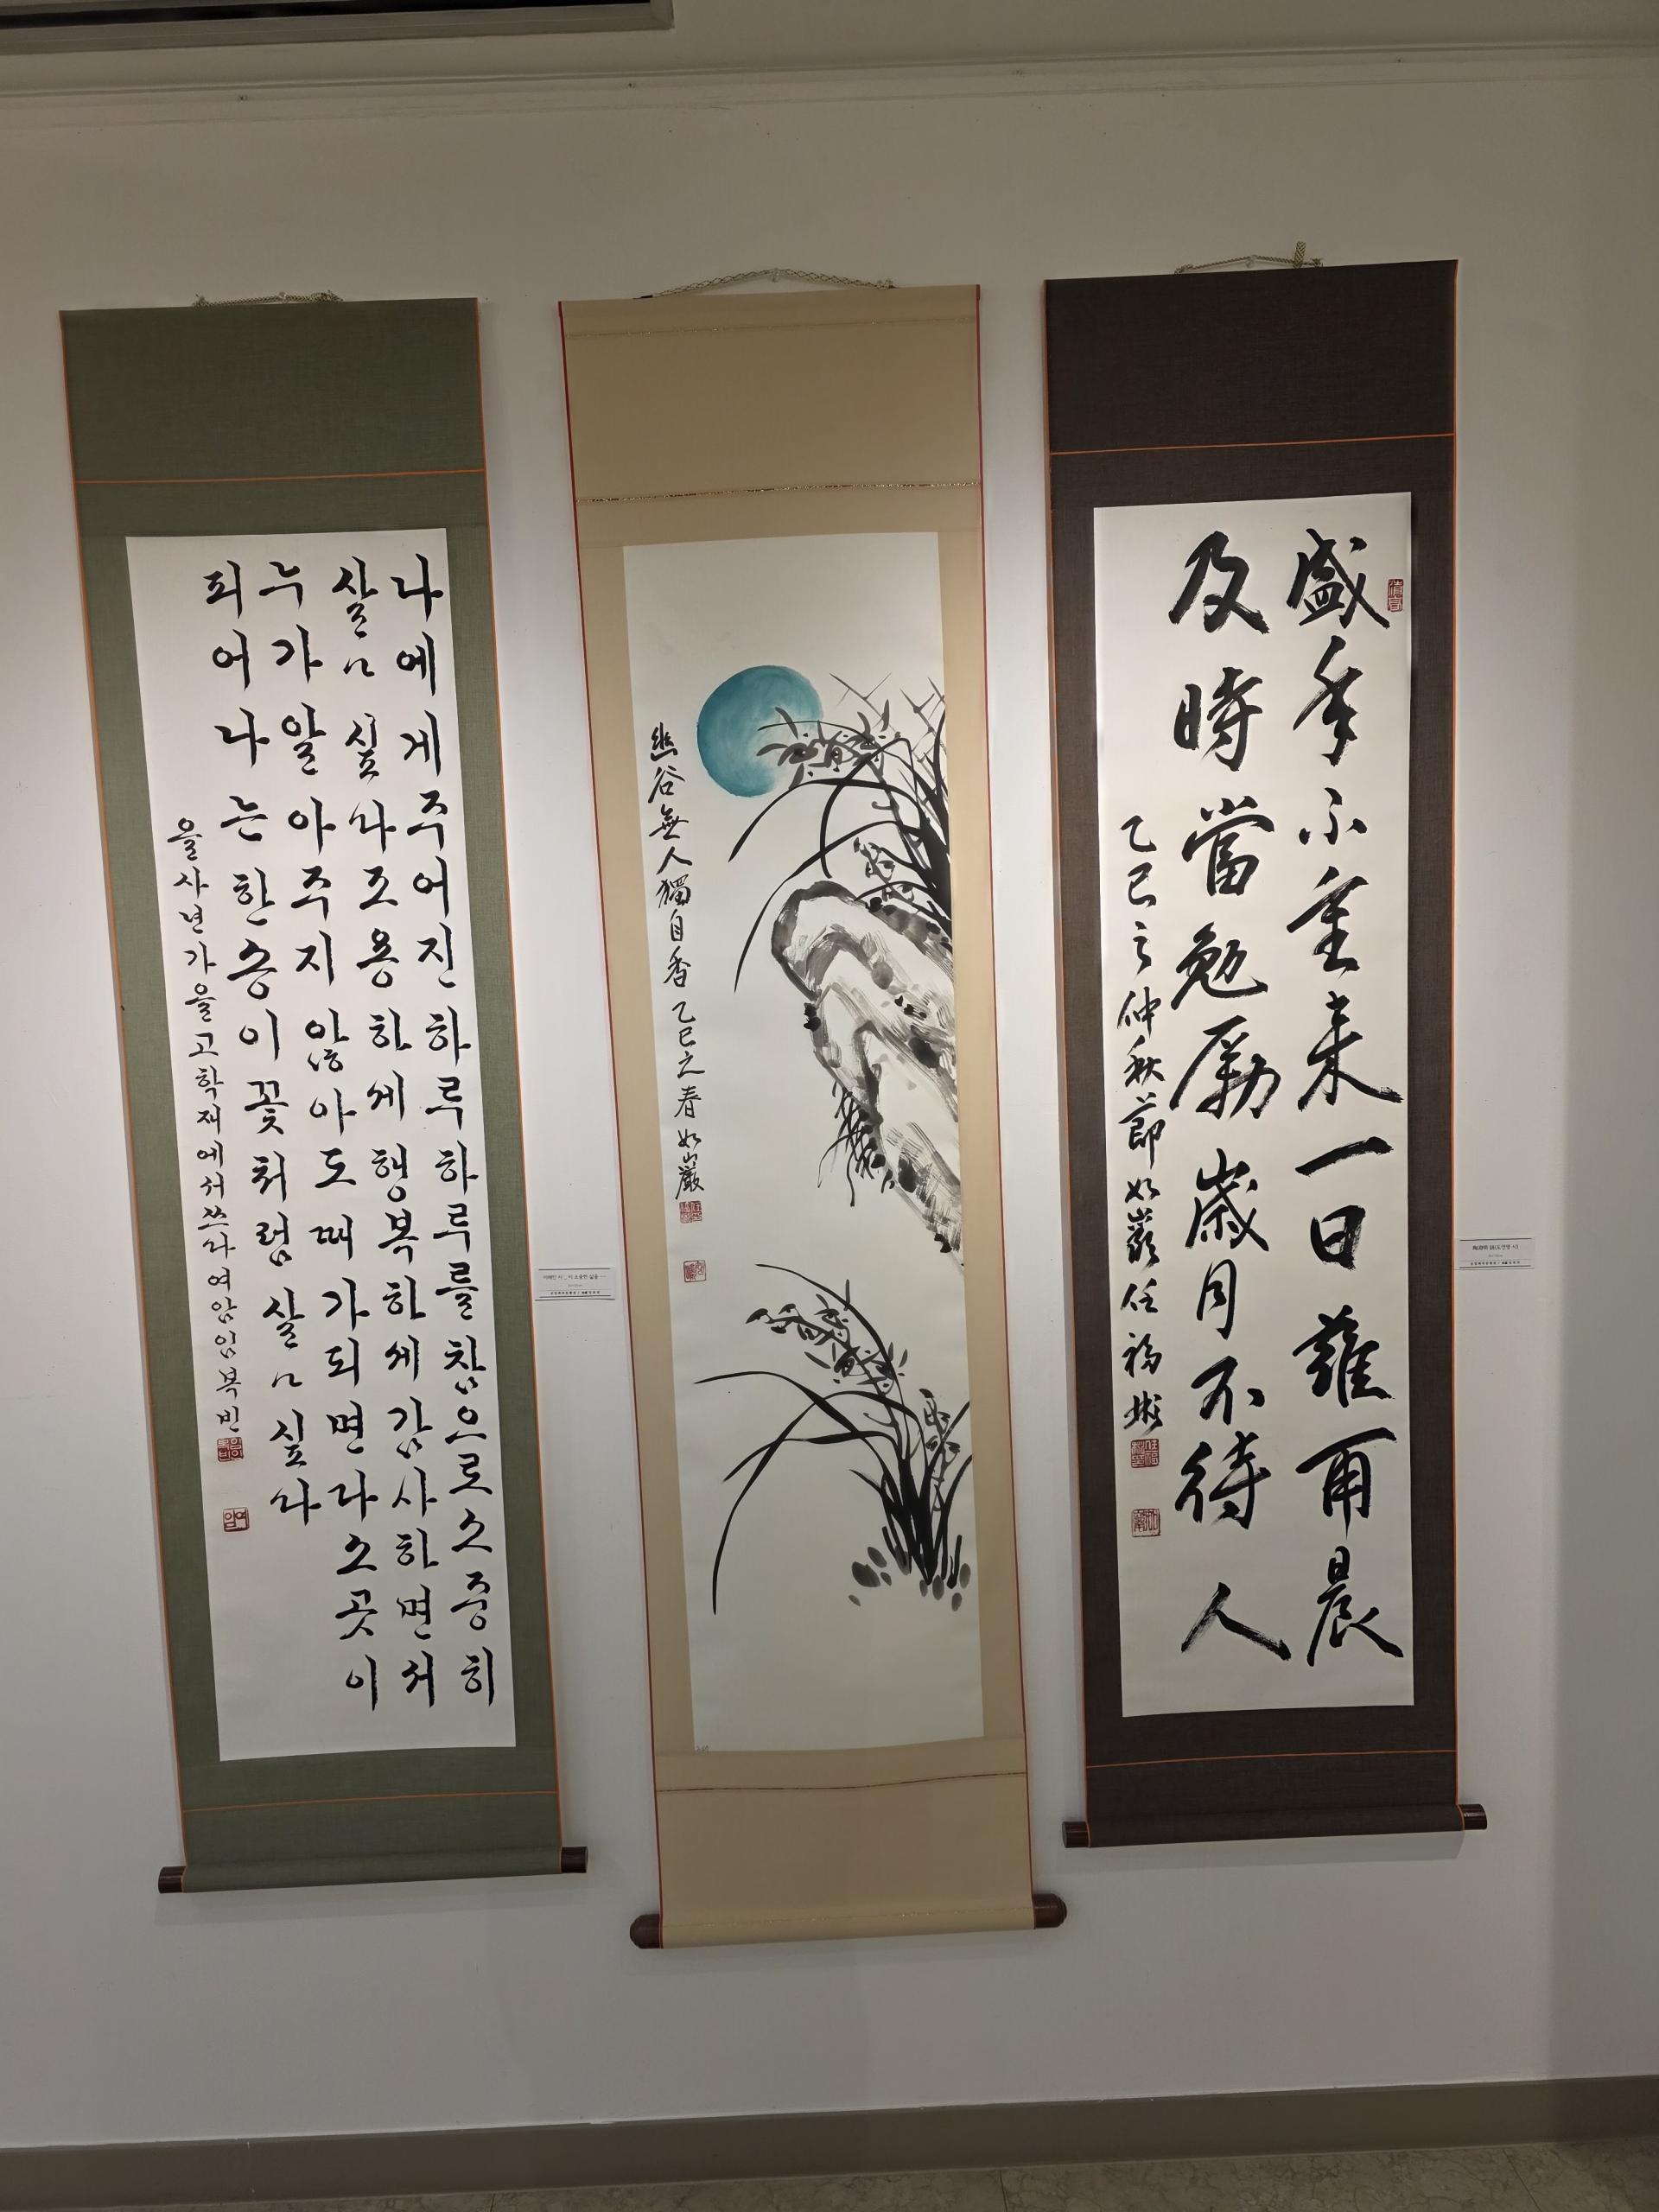 나에게주어진하루하루를참으로소중히
살고싶다조용하게행복하게감사하면서
누가알아주지않아도때가되면다소곳이
피어나는한송이꽃처럼살고싶다
을사년가을고학재에서쓰다여암임복빈
幽谷無人獨自香 乙巳之春 如巖
盛年不重來一日難再晨
及時當勉勵歲月不待人
乙巳之仲秋節如巖任福彬
陶淵明 詩(도연명 시)